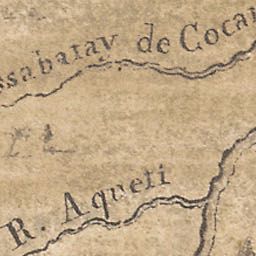 ssabatay de Cocar
R. Aqueti